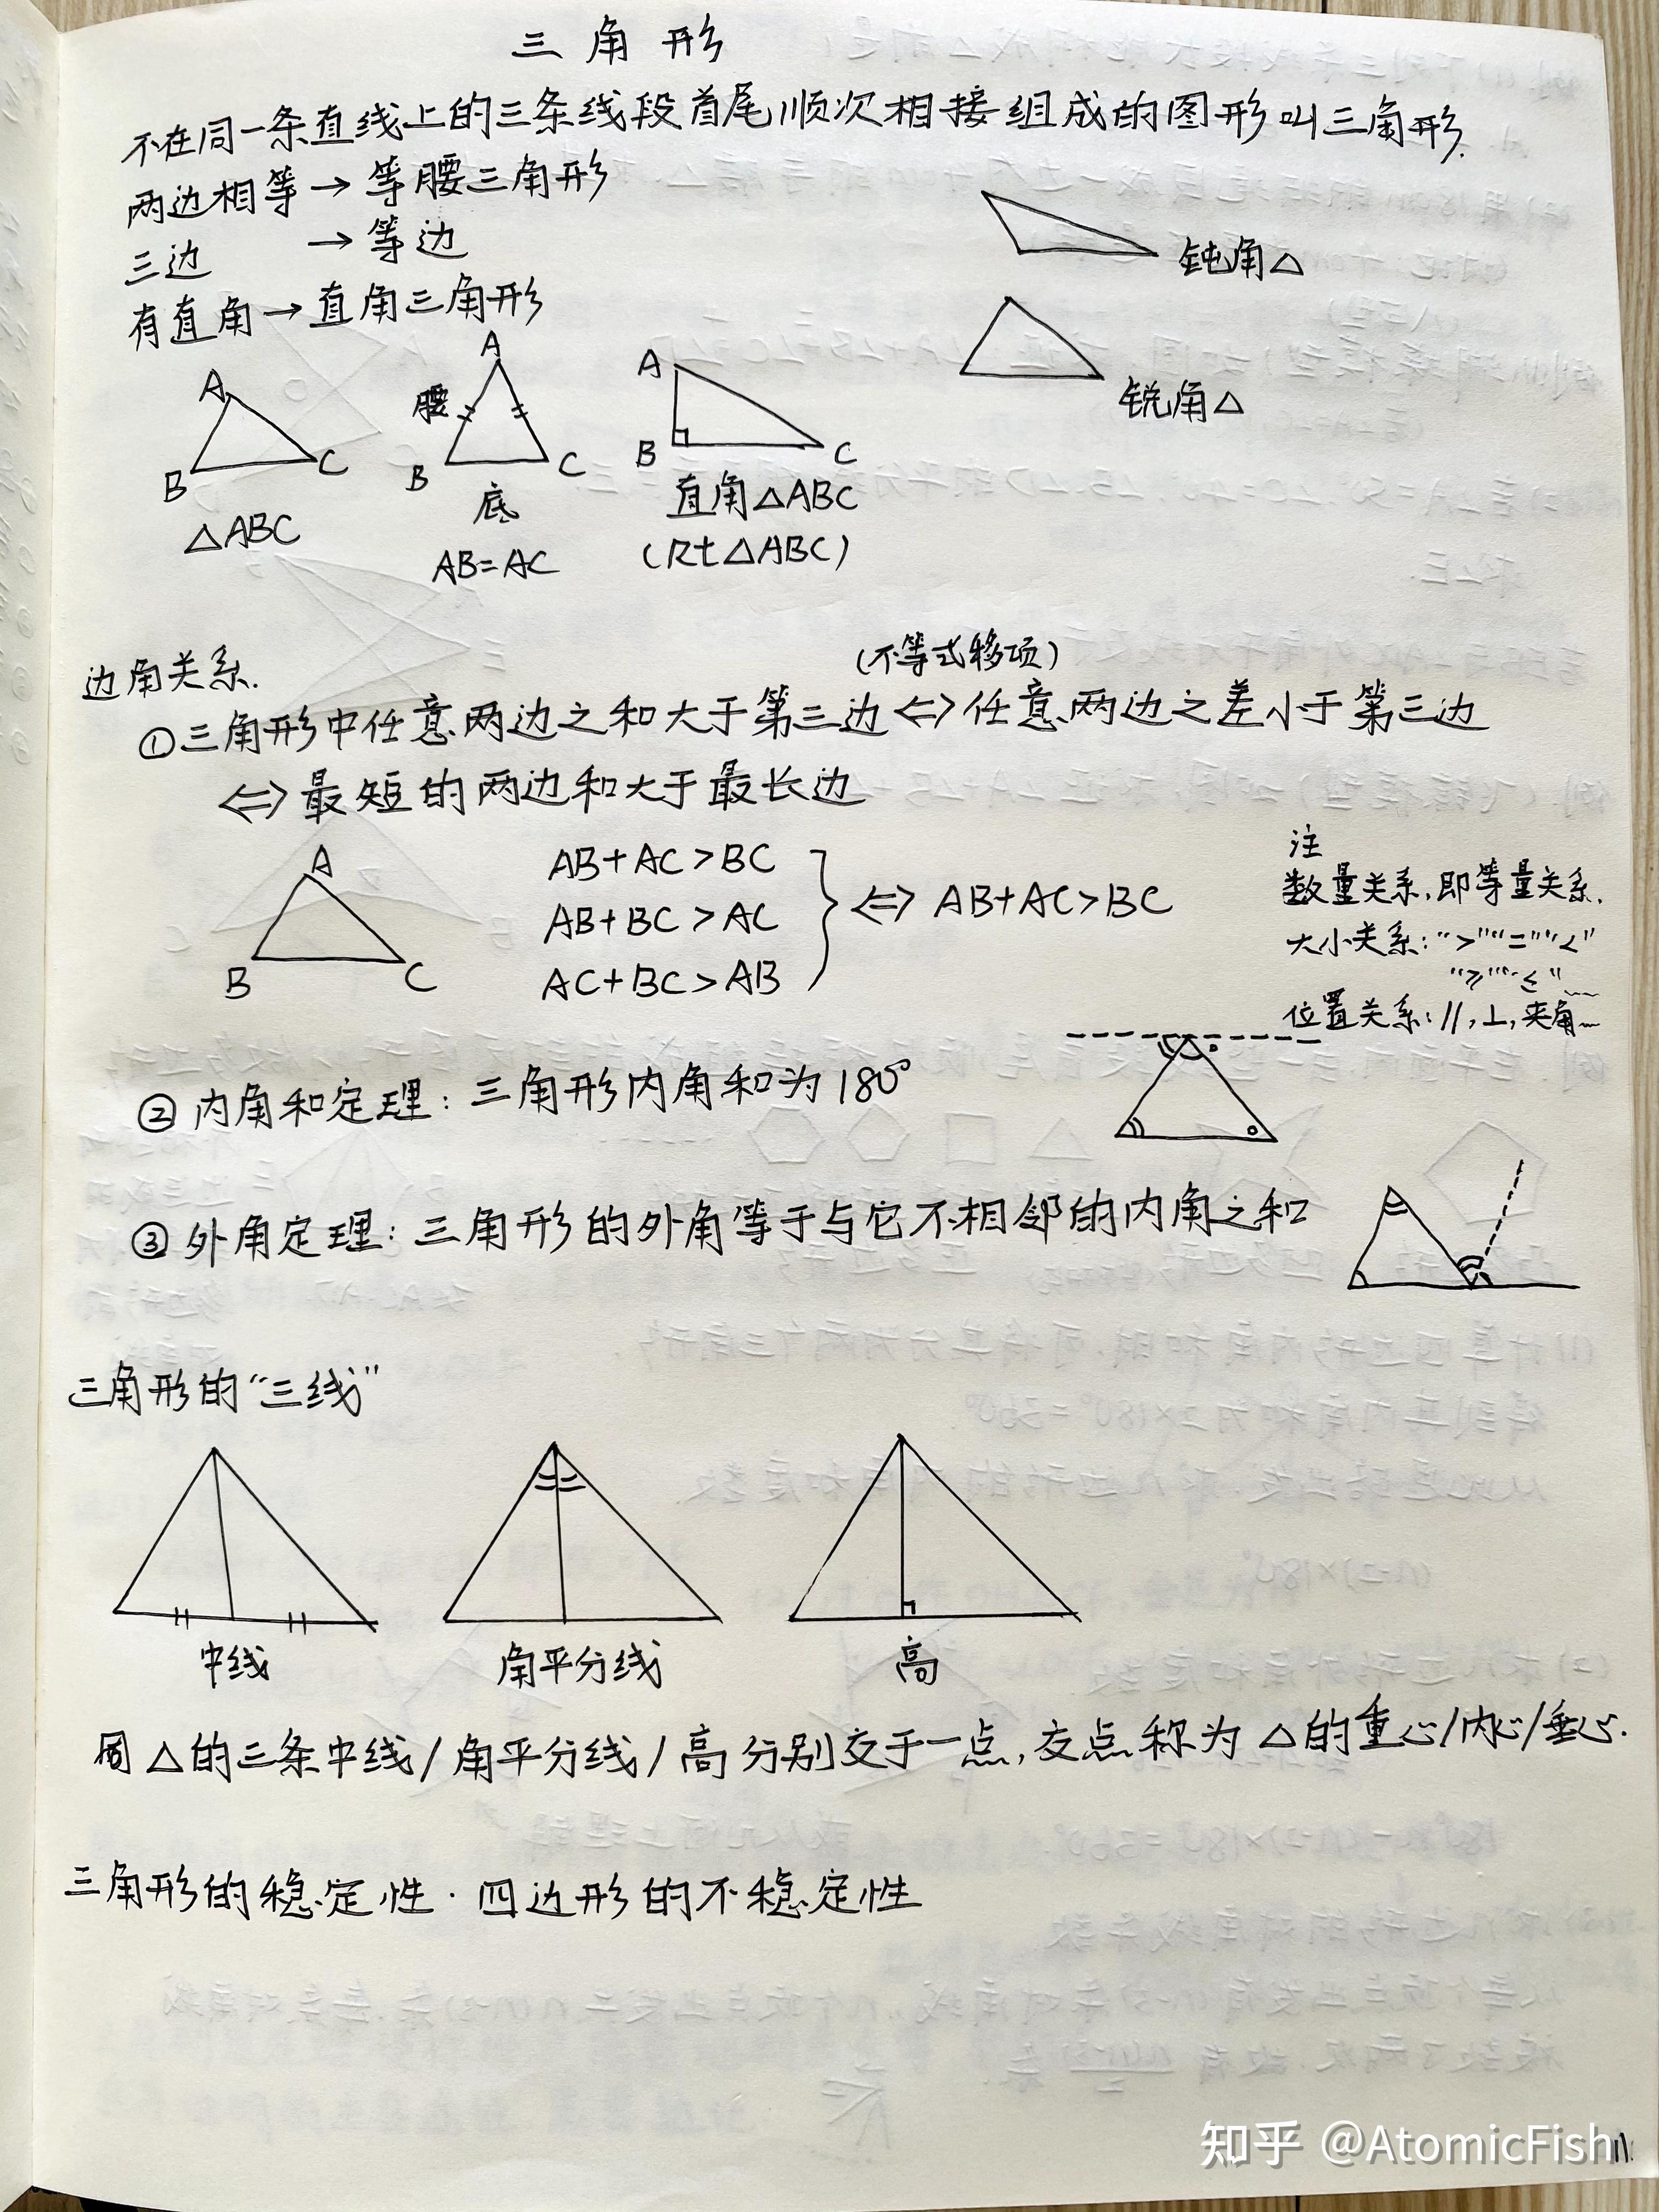 三角形
不在同一条直线上的三条线段首尾顺次相接组成的图形叫三角形.
两边相等→等腰三角形
三边 →等边
有直角→直角三角形
钝角△
锐角△
A
B
C
△ABC
A
腰
B
C
底
AB=AC
A
B
C
直角△ABC
(Rt△ABC)
边角关系.
(不等式移项)
①三角形中任意两边之和大于第三边⇔任意两边之差小于第三边
⇔最短的两边和大于最长边
A
B
C
AB+AC>BC
AB+BC>AC
AC+BC>AB
⇔ AB+AC>BC
注
数量关系,即等量关系.
大小关系:">""=""<"
"≥""≤"
位置关系://,⊥,夹角
②内角和定理:三角形内角和为180°
③外角定理:三角形的外角等于与它不相邻的内角之和
三角形的"三线"
中线
角平分线
高
△的三条中线/角平分线/高分别交于一点,交点称为△的重心/内心/垂心.
三角形的稳定性·四边形的不稳定性
知乎 @AtomicFish